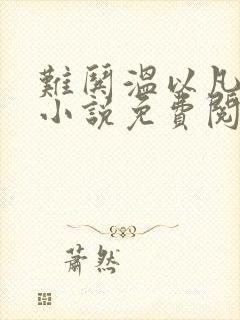 難鬨温以凡
小說免費閱
蕭然